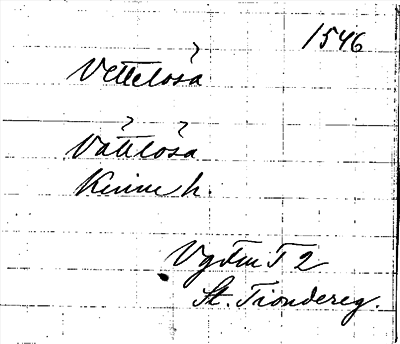 1546
Vettelosa
Vättlösa
Kinne h.
Vg Fm T 2
St. Tiondereg.